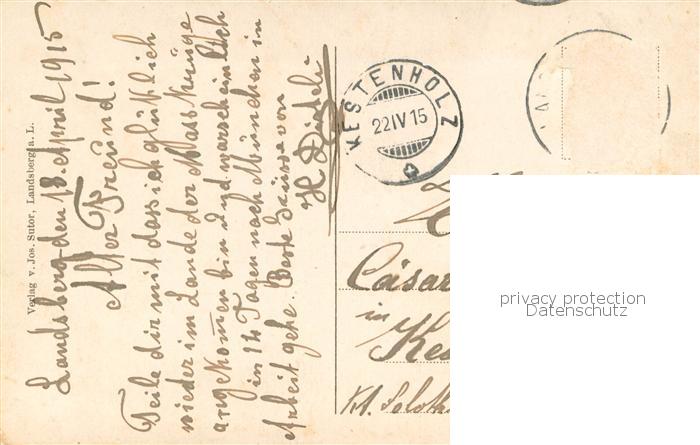 Verlag v. Jos. Sutor, Landsberg a. L.
Landsberg den 18. April 1915
Alter Freund!
Teile dir mit dass ich glüklich
wieder im Lande der Masskrüge
angekom̄en bin und warscheinlich
in 14 Tagen nach München in
Arbeit gehe. Beste Grüsse von
H
KESTENHOLZ
22 IV 15
Cäsar
in
Kes
Kt. Soloth
privacy protection
Datenschutz